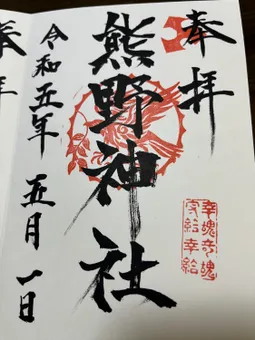 奉拝
熊野神社
令和五年五月一日
幸魂奇魂
守給幸給
奉拝